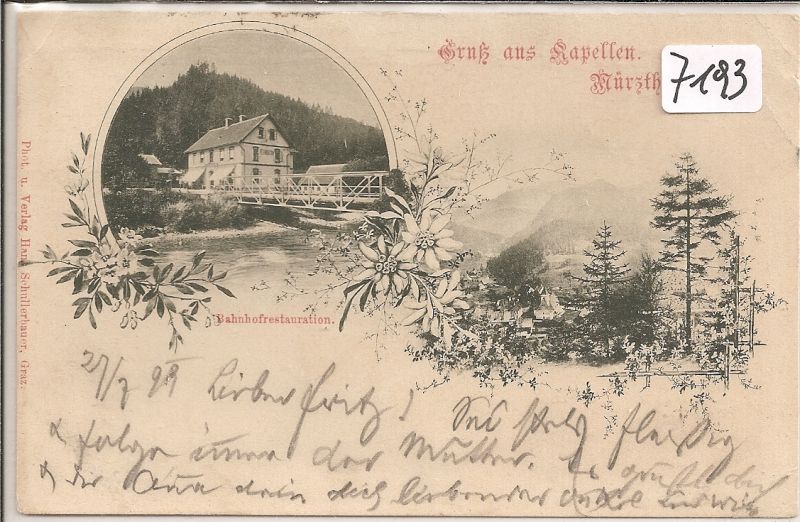 Gruß aus Kapellen.
Mürzth
7193
Phot. u. Verlag Hans Schullerbauer, Graz.
Bahnhofrestauration.
27/7 99 Lieber Fritz! Sei stets fleißig
& folge immer der Mutter. Es grüßt dich
& die dein dich liebender Onkel Ludwig